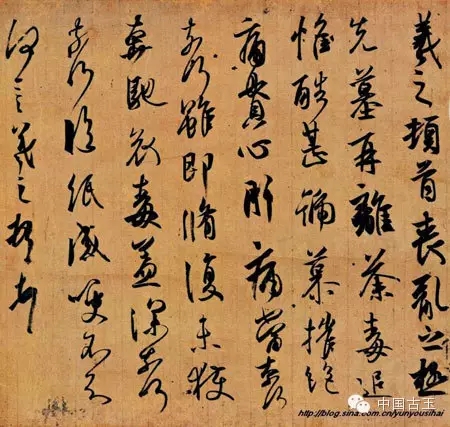 羲之頓首喪亂之極
先墓再離荼毒追
惟酷甚號慕摧絕
痛貫心肝痛當柰何
柰何雖即脩復未獲
奔馳哀毒益深柰何
柰何臨紙感哽不知
何言羲之頓首
http://blog.sina.com.cn/yunyousihai
中国古玉